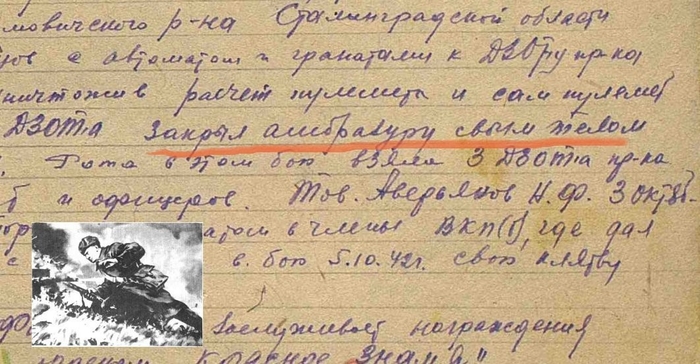 мовического р-на Сталинградской области
с автоматом и гранатами к ДЗОТу пр-ка
уничтожив расчет пулемета и сам пулемет
ДЗОТа закрыл амбразуру своим телом
Рота в этом бою взяла 3 ДЗОТа пр-ка
и офицеров. Тов. Аверьянов Н.Ф. 3 октяб-
в члены ВКП(б), где дал
с в бою 5.10.42г. свою клятву
заслуживает награждения
Красное Знамя"